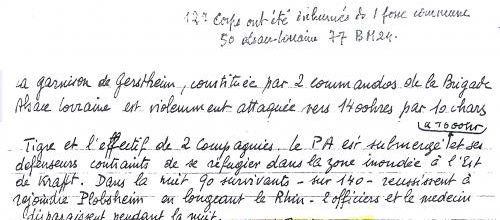 127 corps ont été inhumés de 1 fosse commune
50 alsace-lorraine 77 BM24.
La garnison de Gerstheim, constituée par 2 commandos de la Brigade
Alsace Lorraine est violemment attaquée vers 1400hres par 10 chars
à 1600hr
Tigre et l'effectif de 2 Compagnies. Le PA est submergé et ses
défenseurs contraints de se réfugier dans la zone inondée à l'Est
de Krafft. Dans la nuit 90 survivants - sur 140 - reussissent à
rejoindre Plobsheim en longeant le Rhin - l'officiers et le medecin
disparaissent pendant la nuit.